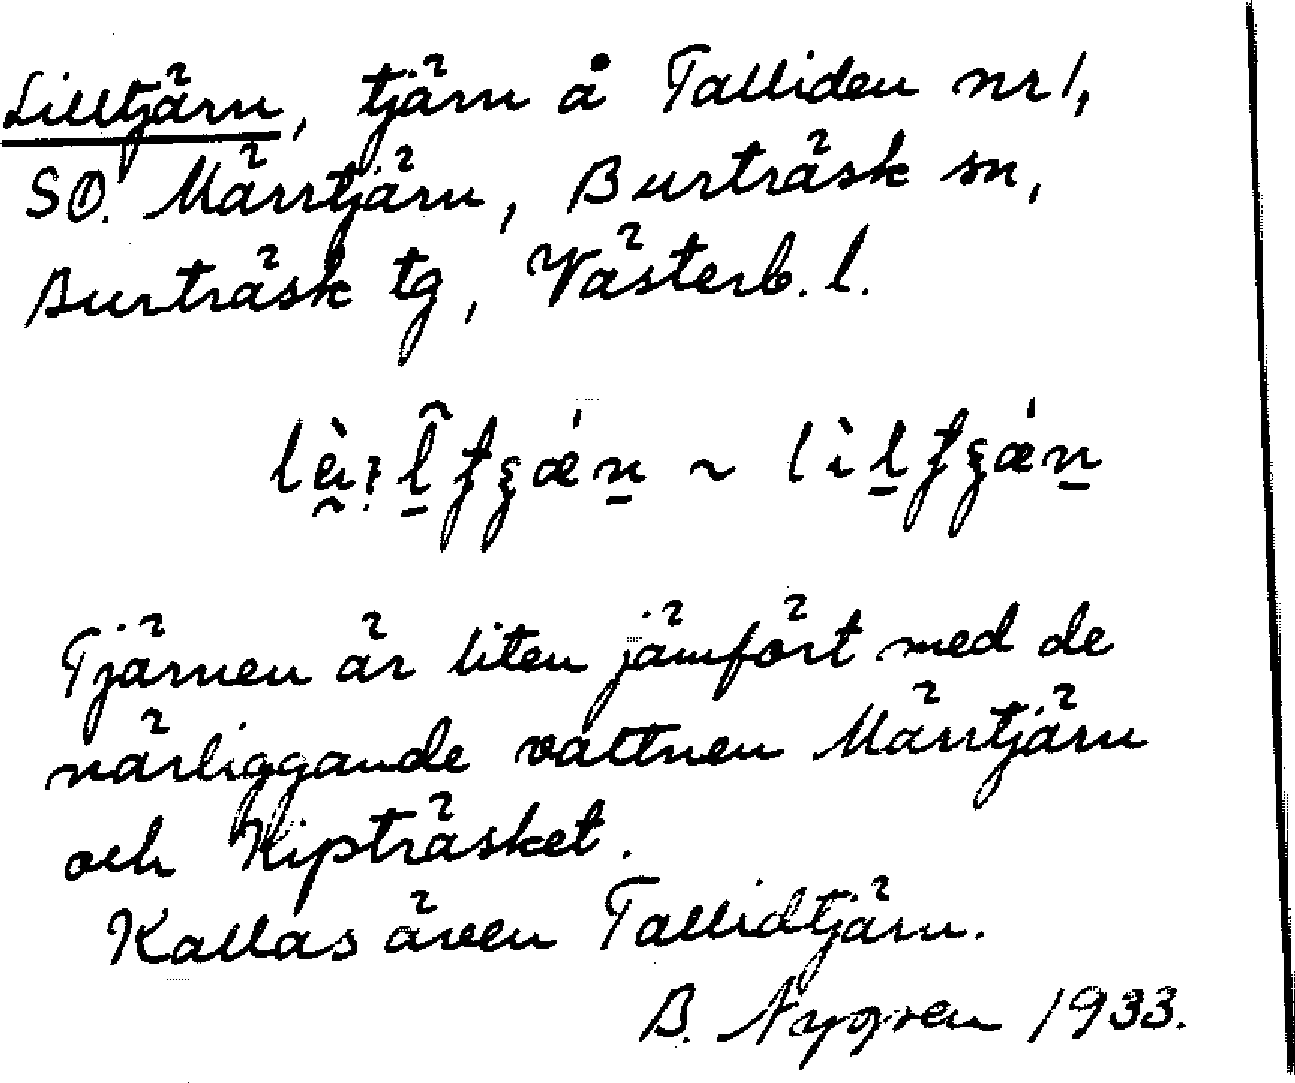 Lilltjärn, tjärn å Talliden nr 1,
SO. Märrtjärn, Burträsk sn,
Burträsk tg, Västerb. l.
Tjärnen är liten jämfört med de
närliggande vattnen Märrtjärn
och Kipträsket.
Kallas även Tallidtjärn.
B. Nygren 1933.